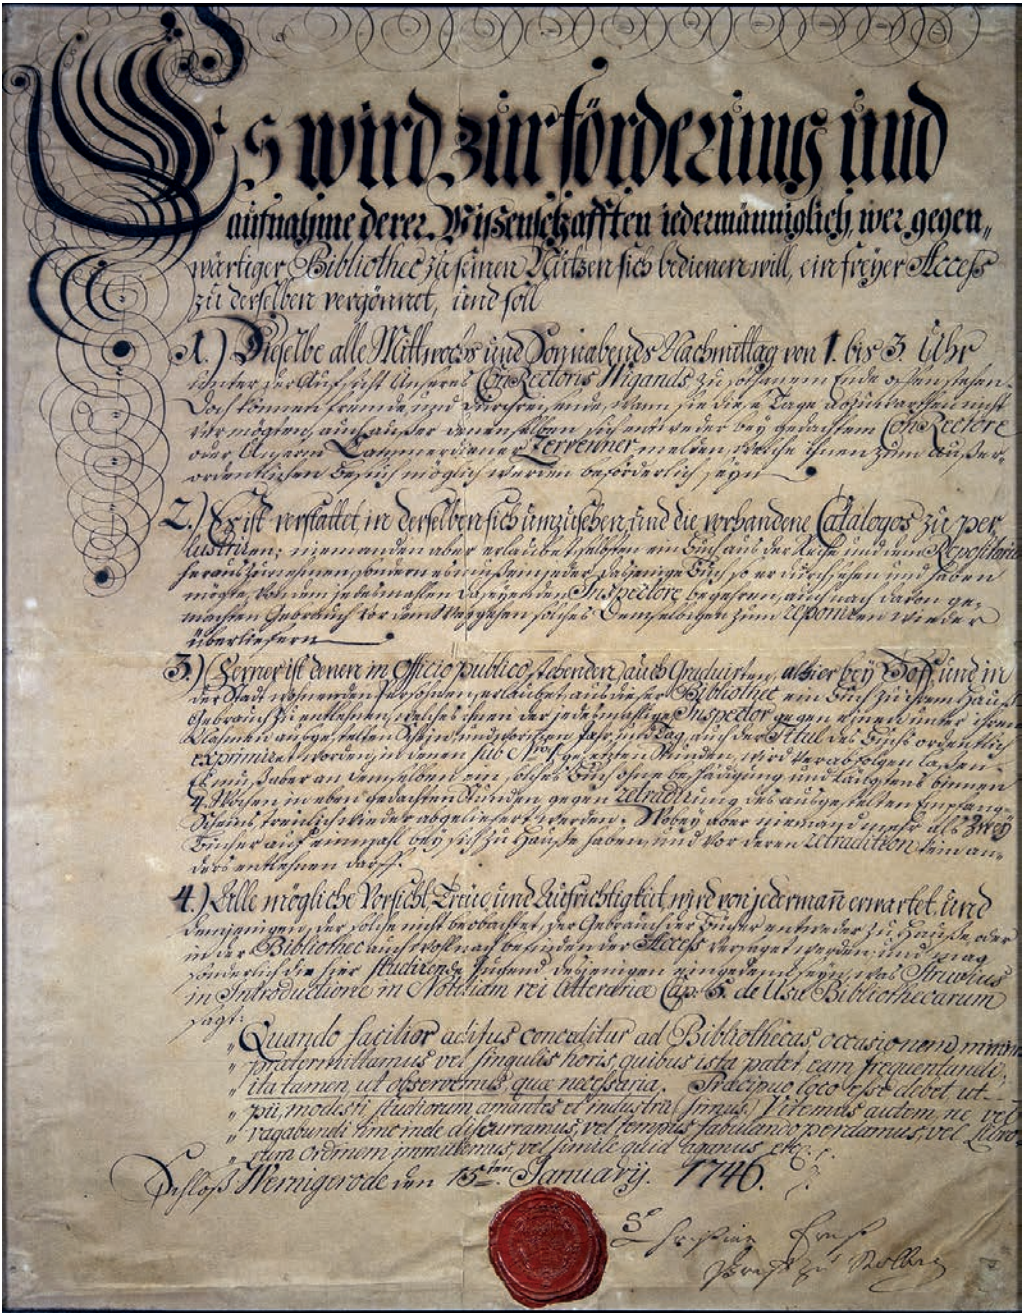 Es wird zur förderung und
aufnahme derer Wissenschafften jedermänniglich, wer gegen„
wärtiger Bibliothec zu seinen Nutzen sich bedienen will, ein freyer Access
zu derselben vergönnet, und soll
1.) Dieselbe alle Mittwochs und Sonnabends Nachmittag von 1. bis 3. Uhr
unter der Aufsicht Unseres ConRectoris Wigands zu solchanem Ende offen stehen.
Doch können fremde und durchreisende, wann sie diese Tage abzuwarthen nicht
vermögten, auch außer denenselben sich entweder bey gedachtem ConRectore
oder Unserm Cammerdiener Zervenner melden, welche ihnen zum außer-
ordentlichen Besuch möglich werden beförderlich seyn
2.) Es ist verstattet, in derselben sich umzusehen, und die vorhandene Catalogos zu per
lustriren; niemanden aber erlaubet, selbsten ein Buch aus der Reihe und dem Repositorio
heraus zu nehmen, sondern es muß ein jeder dasjenige Buch so er durchsehen und haben
mögte, von dem jedesmahlen daseyenden Inspectore begehren, auch nach davon ge-
machten Gebrauch vor dem Weggehen solches demselbigen zum reponiren wieder
überliefern
3.) Ferner ist denen in Officio publico stehenden, auch Graduirten, allhier bey Hoff und in
der Stadt wohnenden Persohnen, erlaubet, aus dieser Bibliothec ein Buch zu ihrem Hauß
Gebrauch zu entlehnen, welches ihnen der jedesmahlige Inspector gegen einen unter ihrem
Nahmen ausgestelten Schein, und worinn Jahr und Tag, auch der Titul des Buchs ordentlich
exprimiret worden, in denen sub No. 1. gesetzten Stunden, wird verabfolgen laßen.
Es muß aber an demselben ein solches Buch ohne beschädigung und längstens binnen
4. Wochen in eben gedachten Stunden, gegen retradirung des ausgestelten Empfang-
Scheins treulich wieder abgeliefert werden. Wobey aber niemand mehr als zwey
Bücher auf einmahl bey sich zu Hauße haben, und vor deren retradition kein an-
ders entlehnen darff.
4.) Alle mögliche Vorsicht, Treue und Aufrichtigkeit, wird von jedermañ erwartet, und
demjenigen, der solche nicht beobachtet, der Gebrauch der Bücher entweder zu Hauße, oder
in der Bibliothec auch wohl nach befinden der Access versaget werden, und mag
sonderlich die hier studirende Jugend desjenigen eingedenck seyn, was Struvius
in Introductione in Notitiam rei litterariæ Cap. 5. de Usu Bibliothecarum
sagt:
„ Quando facilior aditus conceditur ad Bibliothecas, occasionem, minime
„ prætermittamus vel singulis horis, quibus ista patet, eam frequentandi,
„ ita tamen, ut observemus, quæ necessaria. Præcipuo loco esse debet ut
„ pii, modesti, studiorum amantes et industrii simus. Vitemus autem, ne vel
„ vagabundi hinc inde discurramus, vel tempus fabulando perdamus, vel libro
„ rum ordinem immutemus, vel simile quid agamus etc.
Schloß Wernigerode den 15ten January. 1746.
Christian Ernst
Graf zu Stolberg